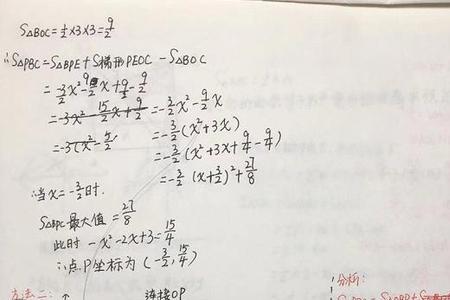 S△BOC=½×3×3=9/2
∴S△PBC=S△BPE+S梯形PEOC-S△BOC
=-3/2x²-9/2x+9/2-9/2
=-3/2x²-9/2x
=-3/2(x²+3x)
=-3/2(x²+3x+9/4-9/4)
=-3/2(x+3/2)²+27/8
∴当x=-3/2时.
S△BPC最大值=27/8
此时-x²-2x+3=15/4
∴点P坐标为(-3/2,15/4)
方法二:
连接OP
分析: